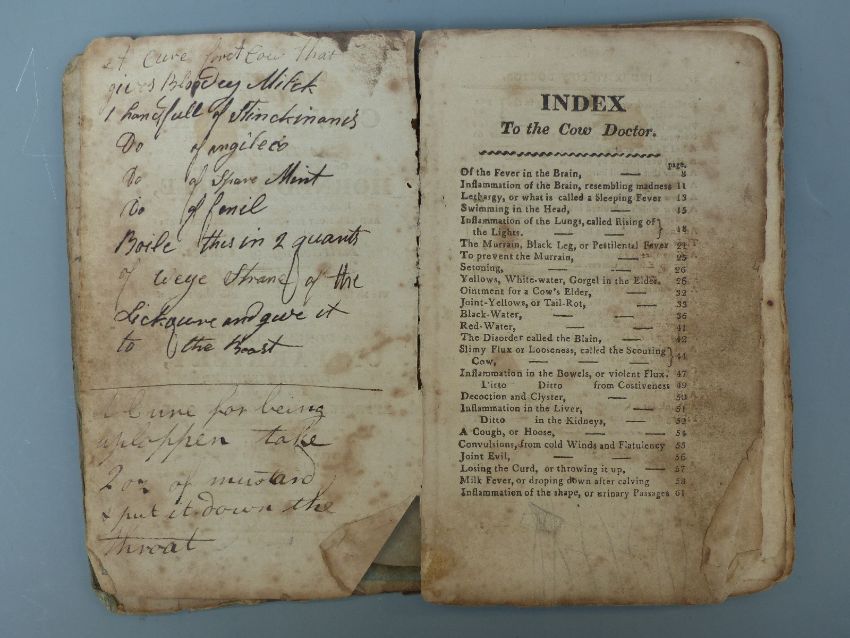 A Cure for a Cow that
gives Bloodey Milck
1 handfull of Stinckinanis
Do of angileco
Do of Spare Mint
Do of fenil
Boile this in 2 quarts
of weye Strane of the
Lickqure and give it
to the Beast
A Cure for being
take
2 oz of mustard
& put it down the
throat
INDEX
To the Cow Doctor.
page.
Of the Fever in the Brain, — 8
Inflammation of the Brain, resembling madness 11
Lethargy, or what is called a Sleeping Fever 13
Swimming in the Head, — 15
Inflammation of the Lungs, called Rising of
the Lights. — — } 18
The Murrain, Black Leg, or Pestilental Fever 21
To prevent the Murrain, — 25
Setoning, — — 26
Yellows, White-water, Gorgel in the Elder. 26
Ointment for a Cow's Elder, — 32
Joint-Yellows, or Tail-Rot, — 33
Black-Water, — — 36
Red-Water, — — 41
The Disorder called the Blain, — 42
Slimy Flux or Looseness, called the Scouring
Cow, — — — } 44
Inflammation in the Bowels, or violent Flux. 47
Ditto Ditto from Costiveness 49
Decoction and Clyster, — 50
Inflammation in the Liver, — 51
Ditto in the Kidneys, — 52
A Cough, or Hoose, — — 54
Convulsions, from cold Winds and Flatulency 55
Joint Evil, — — 56
Losing the Curd, or throwing it up, — 57
Milk Fever, or droping down after calving 58
Inflammation of the shape, or urinary Passages 61